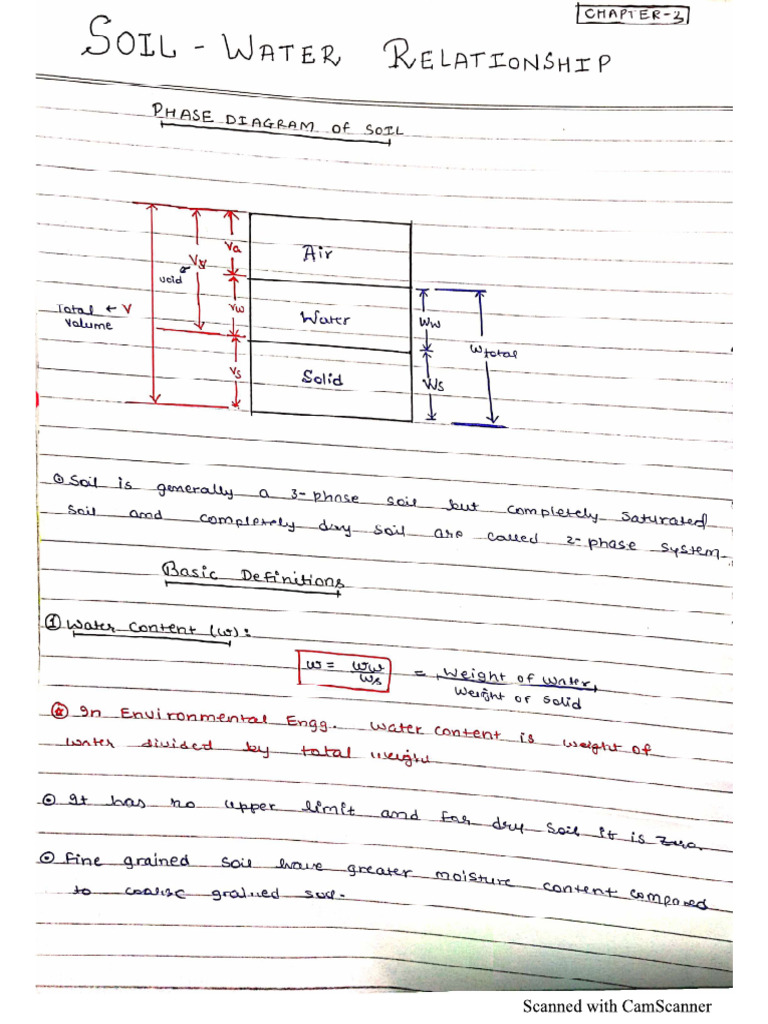 CHAPTER-3
SOIL - WATER RELATIONSHIP
PHASE DIAGRAM OF SOIL
Va
Air
Vv
or
void
Vw
Water
Ww
Total ← V
Volume
Wtotal
Vs
Solid
Ws
Soil is generally a 3-phase soil but completely saturated
soil and completely dry soil are called 2-phase system.
Basic Definitions
① Water Content (w):
w = Ww/Ws = Weight of water/Weight of solid
In Environmental Engg. water content is weight of
water divided by total weight
It has no upper limit and for dry soil it is zero.
Fine grained soil have greater moisture content compared
to coarse grained soil.
Scanned with CamScanner